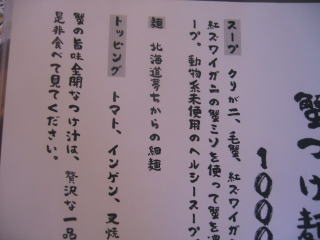 蟹つけ麺
1000
スープ クリガニ、毛蟹、紅ズワイガ
紅ズワイガニの蟹ミソを使って蟹を
ープ。動物系未使用のヘルシースープ
麺 北海道夢ちからの細麺
トッピング トマト、インゲン、叉焼
蟹の旨味全開なつけ汁は、贅沢な一品
是非食べて見てください。